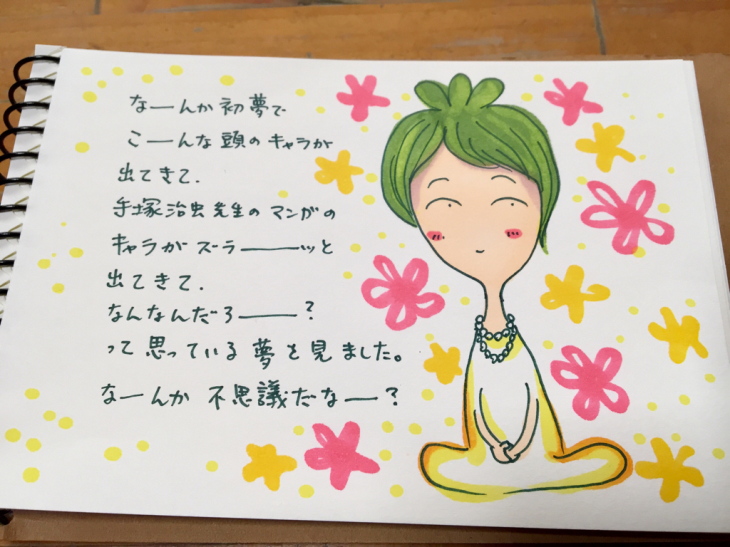 なーんか初夢で
こーんな頭のキャラが
出てきて.
手塚治虫先生のマンガの
キャラがズラーーッと
出てきて.
なんなんだろーー?
って思っている夢を見ました。
なーんか不思議だなー?